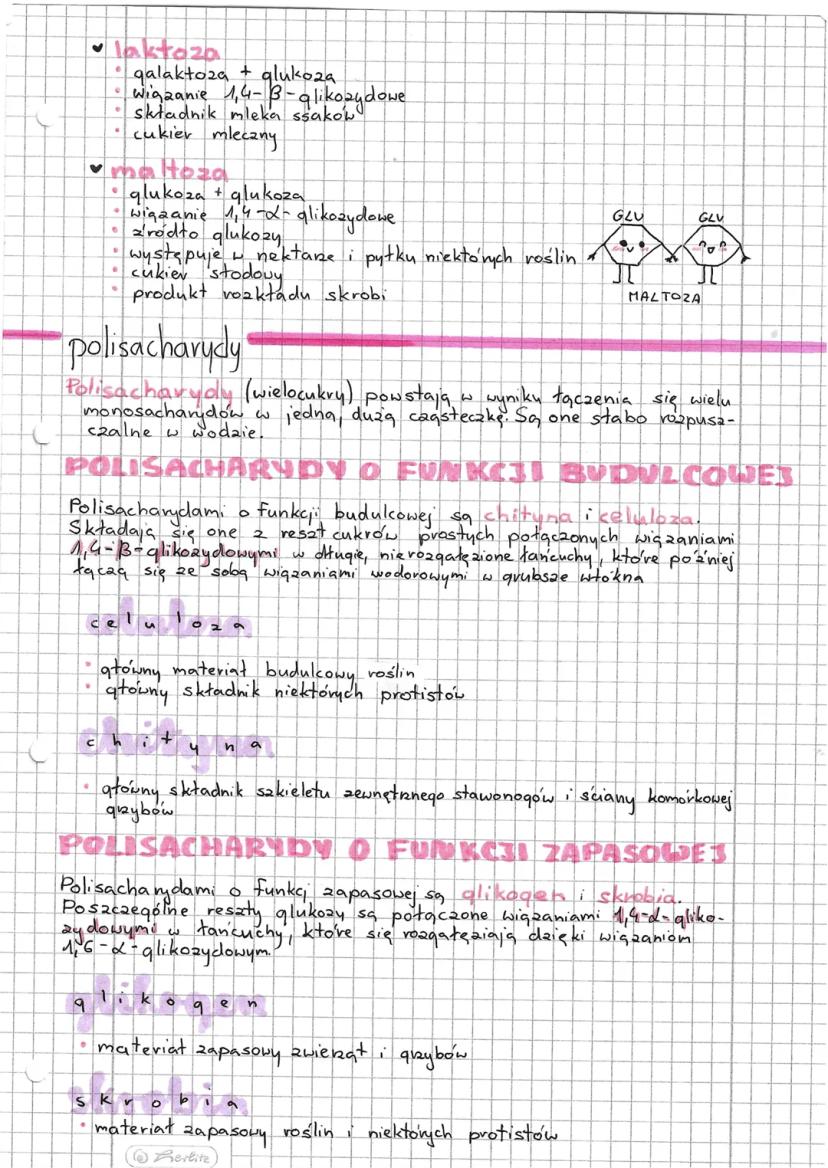 laktoza
galaktoza + glukoza
wiązanie 1,4-β-glikozydowe
składnik mleka ssaków
cukier mleczny
maltoza
glukoza + glukoza
wiązanie 1,4-α-glikozydowe
źródło glukozy
występuje w nektarze i pyłku niektórych roślin
cukier słodowy
produkt rozkładu skrobi
GLU GLU
MALTOZA
polisacharydy
Polisacharydy (wielocukry) powstają w wyniku łączenia się wielu
monosacharydów w jedną, dużą cząsteczkę. Są one słabo rozpusz-
czalne w wodzie.
POLISACHARYDY O FUNKCJI BUDULCOWEJ
Polisacharydami o funkcji budulcowej są chityna i celuloza.
Składają się one z reszt cukrów prostych połączonych wiązaniami
1,4-β-glikozydowymi w długie, nierozgałęzione łańcuchy, które później
łączą się ze sobą wiązaniami wodorowymi w grubsze włókna
celuloza
główny materiał budulcowy roślin
główny składnik niektórych protistów
chityna
główny składnik szkieletu zewnętrznego stawonogów i ściany komórkowej
grzybów
POLISACHARYDY O FUNKCJI ZAPASOWEJ
Polisacharydami o funkcj zapasowej są glikogen i skrobia.
Poszczególne reszty glukozy są połączone wiązaniami 1,4-α-gliko-
zydowymi w łańcuchy, które się rozgałęziają dzięki wiązaniom
1,6-α-glikozydowym.
glikogen
materiał zapasowy zwierząt i grzybów
skrobia
materiał zapasowy roślin i niektórych protistów
@ Berlitz